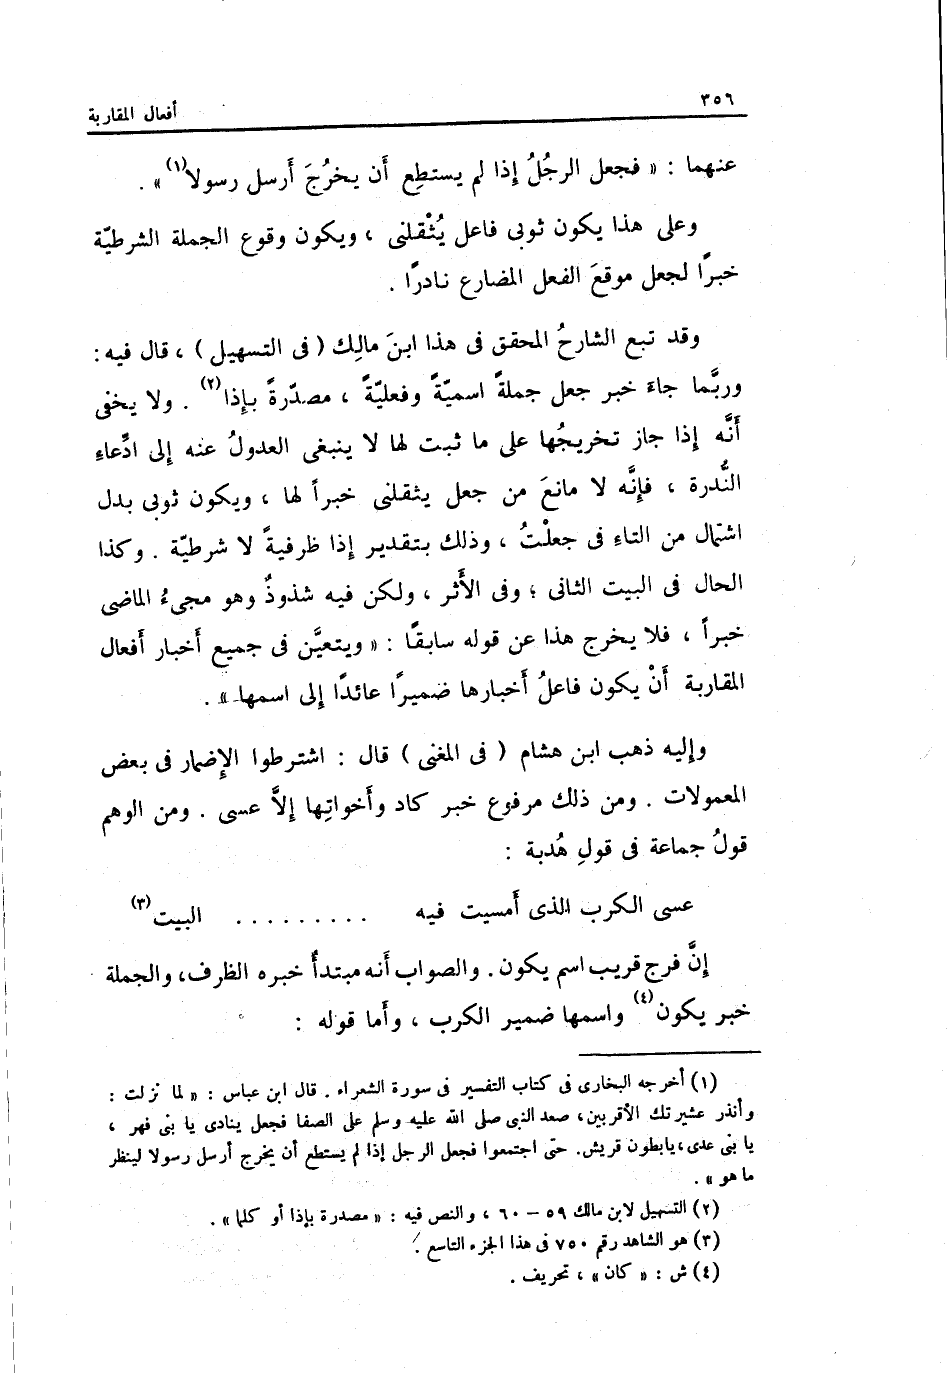 ٣٥٦
أفعال المقاربة
عنهما : « فجعل الرجُلُ إذا لم يستطِع أَن يخرُجَ أَرسل رسولا(١)» .
وعلى هذا يكون ثوبى فاعل يُثْقلنى ، ويكون وقوع الجملة الشرطيّة
خبرًا لجعل موقعَ الفعل المضارع نادرًا .
وقد تبع الشارحُ المحقق فى هذا ابنَ مالِك ( فى التسهيل ) ، قال فيه :
وربَّما جاءَ خبر جعل جملةً اسميّةً وفعليّةً ، مصدّرةً بإذا(٢) . ولا يخفى
أَنَّه إذا جاز تخريجُها على ما ثبت لها لا ينبغى العدولُ عنه إلى ادِّعاءِ
النُّدرة ، فإنَّه لا مانعَ من جعل يثقلنى خبراً لها ، ويكون ثوبى بدل
اشتمال من التاء فى جعلْتُ ، وذلك بتقدير إذا ظرفيةً لا شرطيّة . وكذا
الحال فى البيت الثانى ؛ وفى الأَثر ، ولكن فيه شذوذٌ وهو مجىءُ الماضى
خبراً ، فلا يخرج هذا عن قوله سابقًا : « ويتعيَّن فى جميع أَخبار أَفعال
المقاربة أَنْ يكون فاعلُ أَخبارها ضميرًا عائدًا إلى اسمها » .
وإليه ذهب ابن هشام ( فى المغنى ) قال : اشترطوا الإِضمار فى بعض
المعمولات . ومن ذلك مرفوع خبر كاد وأَخواتِها إلاَّ عسى . ومن الوهم
قولُ جماعة فى قولِ هُدبة :
عسى الكرب الذى أَمسيت فيه ......... البيت(٣)
إنَّ فرج قريب اسم يكون . والصواب أَنه مبتدأٌ خبره الظرف ، والجملة
خبر يكون(٤) واسمها ضمير الكرب ، وأَما قوله :
(١) أخرجه البخارى فى كتاب التفسير فى سورة الشعراء . قال ابن عباس : « لما نزلت :
وأنذر عشيرتك الأقربين ، صعد النبى صلى الله عليه وسلم على الصفا فجعل ينادى يا بنى فهر ،
يا بنى عدى ، يابطون قريش . حتى اجتمعوا فجعل الرجل إذا لم يستطع أن يخرج أرسل رسولا لينظر
ما هو » .
(٢) التسهيل لابن مالك ٥٩ – ٦٠ ، والنص فيه : « مصدرة بإذا أو كلما » .
(٣) هو الشاهد رقم ٧٥٠ فى هذا الجزء التاسع .
(٤) ش : « كان » ، تحريف .